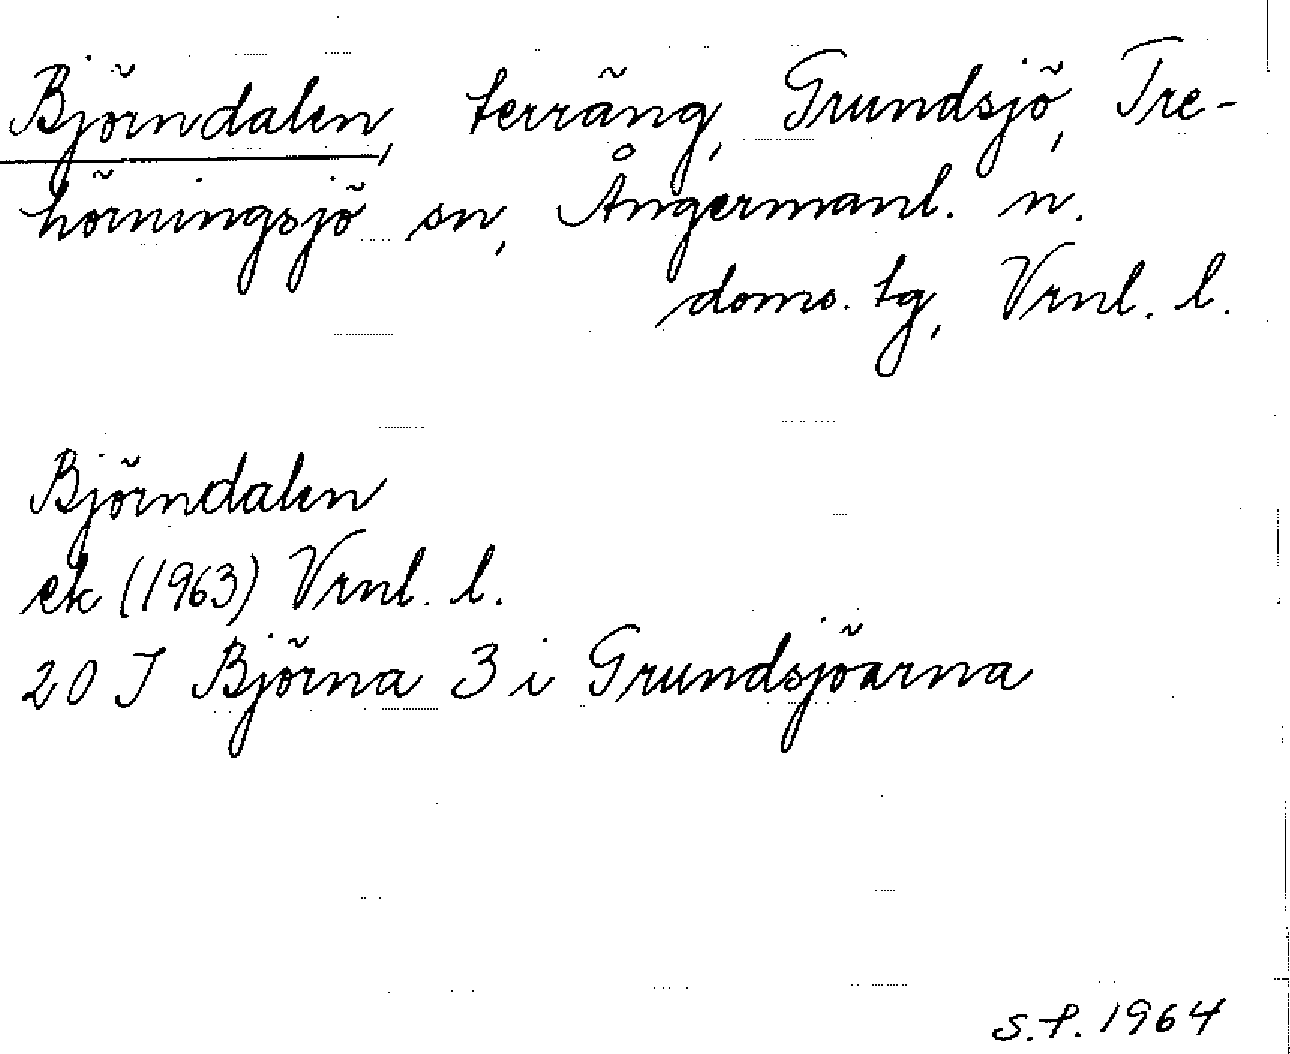 Björndalen, terräng, Grundsjö, Tre-
hörningsjö sn, Ångermanl. n.
doms. tg, Vrnl. l.
Björndalen
ek (1963) Vrnl. l.
20 I Björna 3 i Grundsjöarna
S.P. 1964